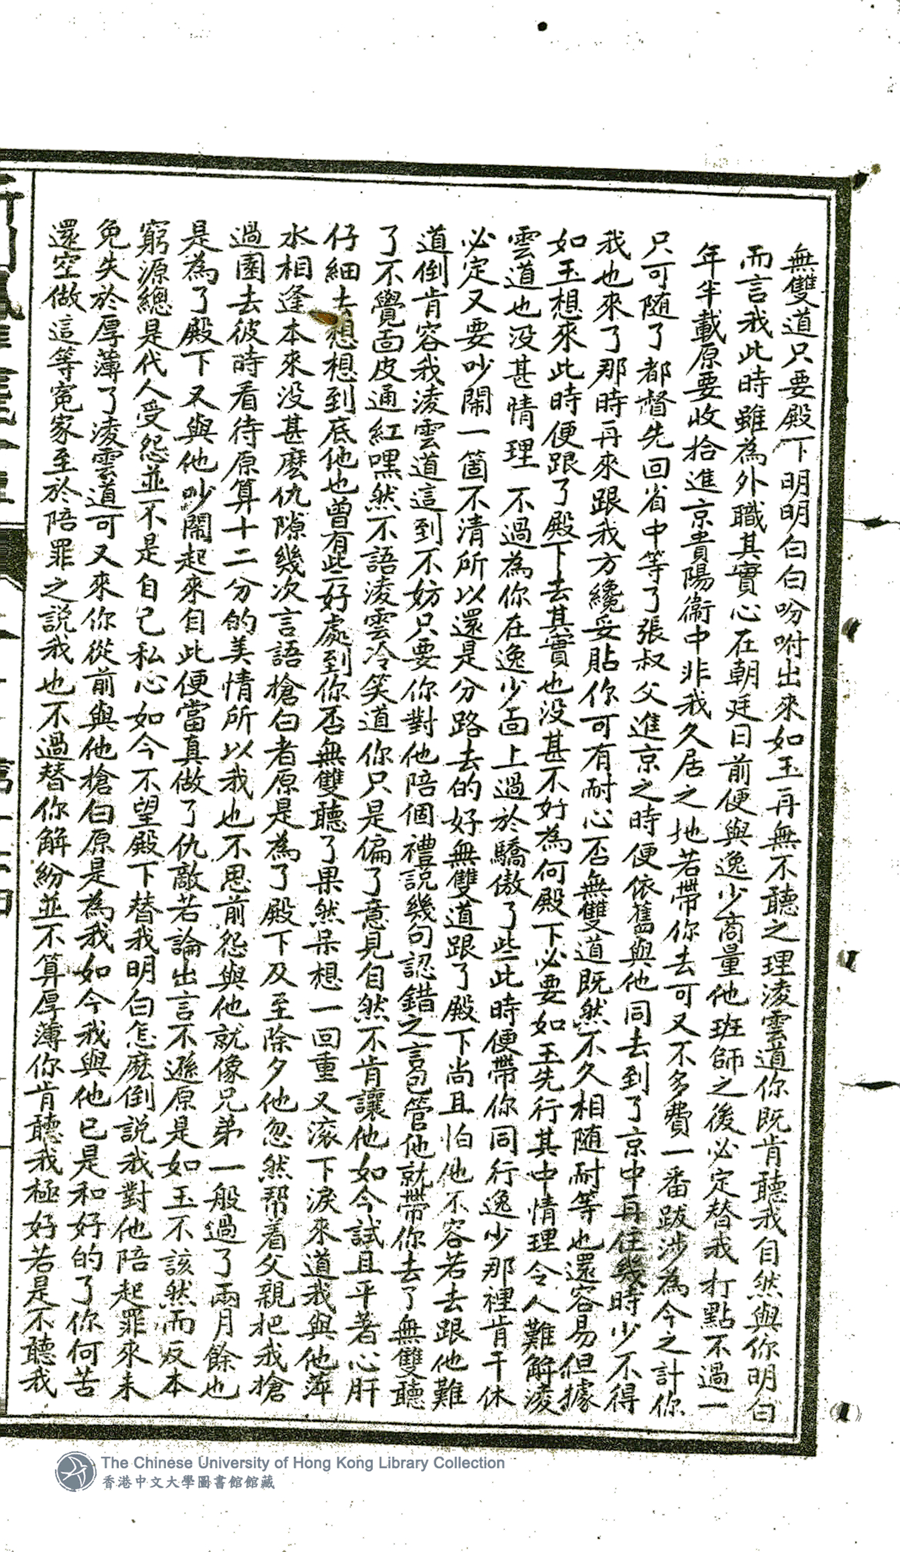 無雙道只要殿下明明白白吩咐出來如玉再無不聽之理淩雲道你既肯聽我自然與你明白
而言我此時雖為外職其實心在朝廷日前便與逸少商量他班師之後必定替我打點不過一
年半載原要收拾進京貴陽衞中非我久居之地若帶你去可又不多費一番跋涉為今之計你
只可隨了都督先回省中等了張叔父進京之時便依舊與他同去到了京中再住幾時少不得
我也來了那時再來跟我方纔妥貼你可有耐心否無雙道既然不久相隨耐等也還容易但據
如玉想來此時便跟了殿下去其實也没甚不好為何殿下必要如玉先行其中情理令人難解淩
雲道也没甚情理不過為你在逸少面上過於驕傲了些此時便帶你同行逸少那裡肯干休
必定又要吵鬧一箇不清所以還是分路去的好無雙道跟了殿下尚且怕他不容若去跟他難
道倒肯容我淩雲道這到不妨只要你對他陪個禮說幾句認錯之言包管他就帶你去了無雙聽
了不覺面皮通紅嘿然不語淩雲冷笑道你只是偏了意見自然不肯讓他如今試且平著心肝
仔細去想想到底他也曾有些好處到你否無雙聽了果然呆想一回重又滚下淚來道我與他萍
水相逢本來没甚麽仇隙幾次言語搶白者原是為了殿下及至除夕他忽然帮着父親把我搶
過園去彼時看待原算十二分的美情所以我也不思前怨與他就像兄弟一般過了兩月餘也
是為了殿下又與他吵鬧起來自此便當真做了仇敵若論出言不遜原是如玉不該然而反本
窮源總是代人受怨並不是自己私心如今不望殿下替我明白怎麽倒說我對他陪起罪來未
免失於厚薄了淩雲道可又來你從前與他搶白原是為我如今我與他已是和好的了你何苦
還空做這等寃家至於陪罪之説我也不過替你解紛並不算厚薄你肯聽我極好若是不聽我
The Chinese University of Hong Kong Library Collection
香港中文大學圖書館館藏